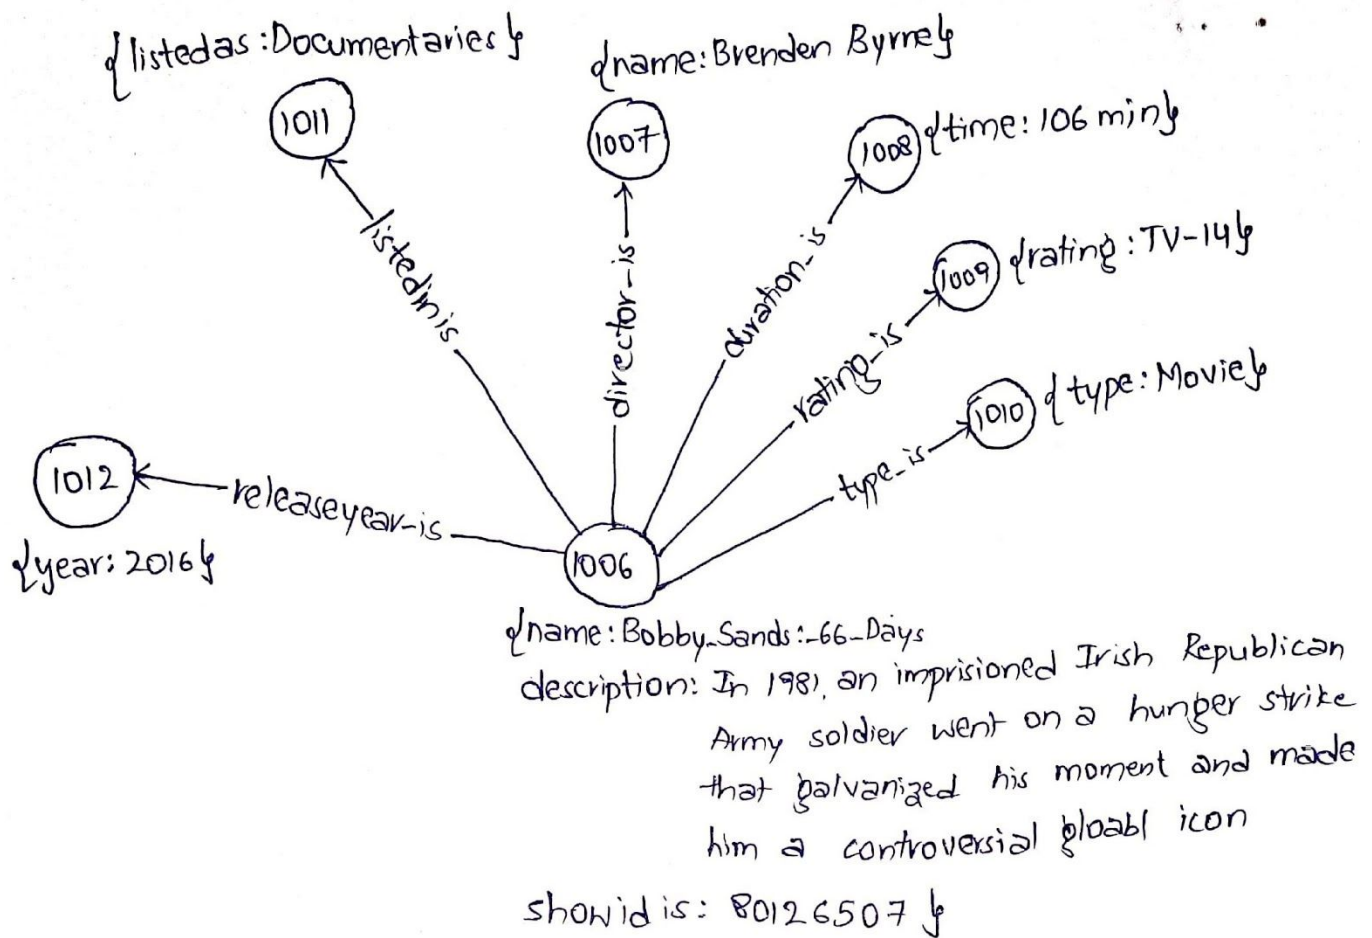 {listedas:Documentaries}
{name:Brenden Byrne}
1011
1007
1008 {time: 106 min}
listedinis
director-is
duration_is
1009 {rating: TV-14}
rating_is
1010 {type: Movie}
type_is
1012
releaseyear-is
{year: 2016}
1006
{name: Bobby_Sands:-66-Days
description: In 1981, an imprisioned Irish Republican
Army soldier went on a hunger strike
that galvanized his moment and made
him a controversial gloabl icon
showid is: 80126507 }